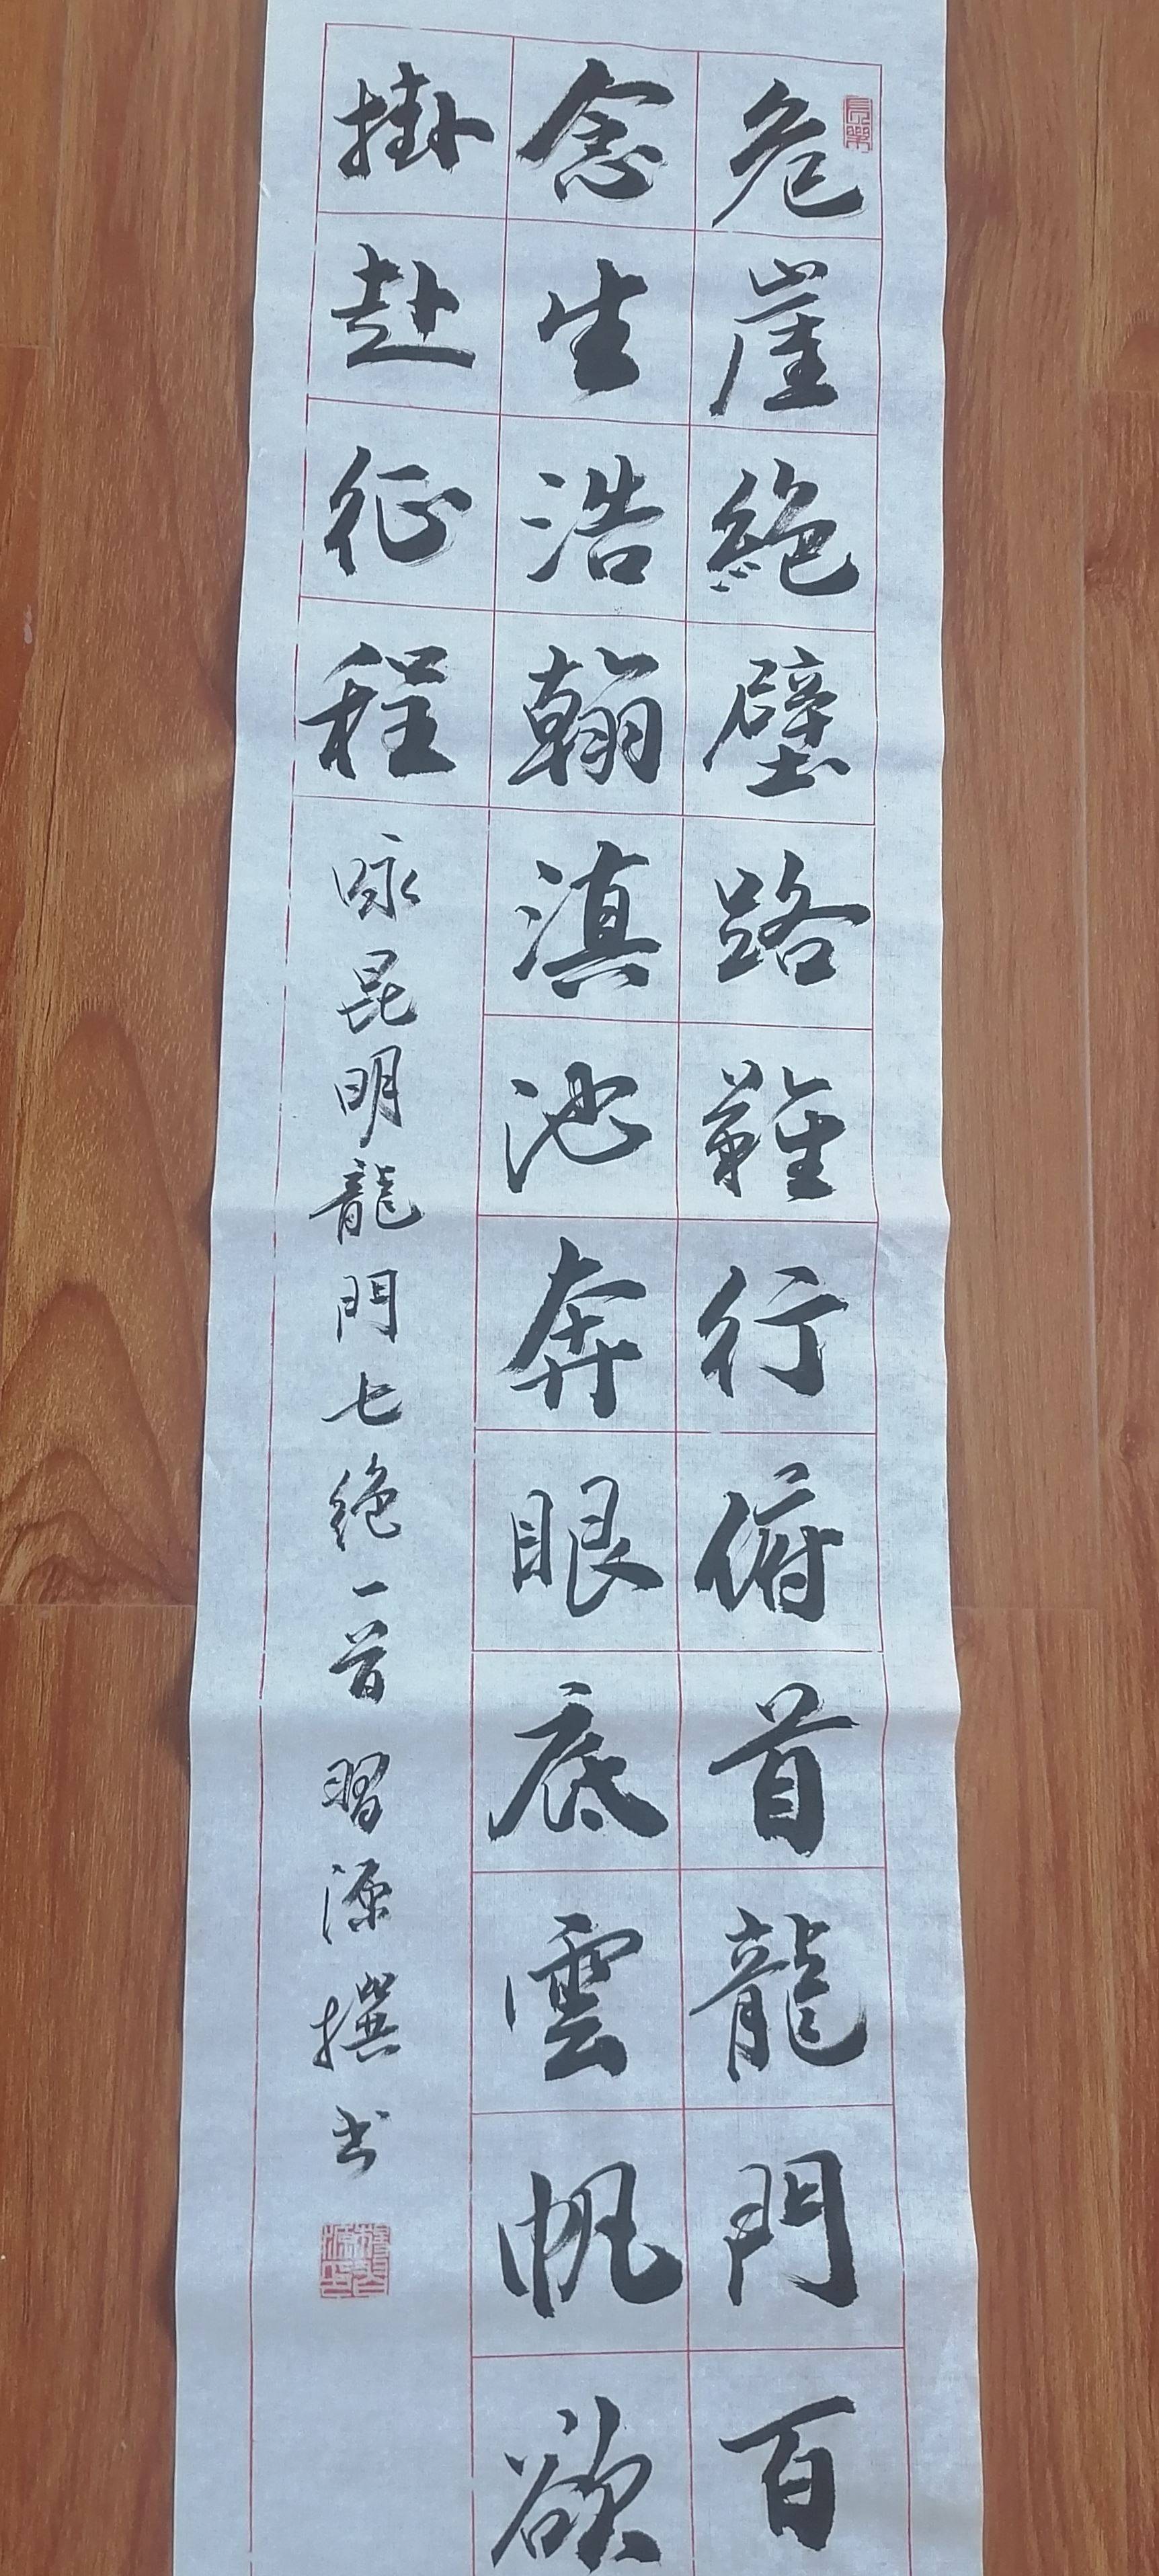 危崖絶壁路難行俯首龍門百
念生浩翰滇池奔眼底雲帆欲
掛赴征程
咏昆明龍門七絶一首 習源撰书